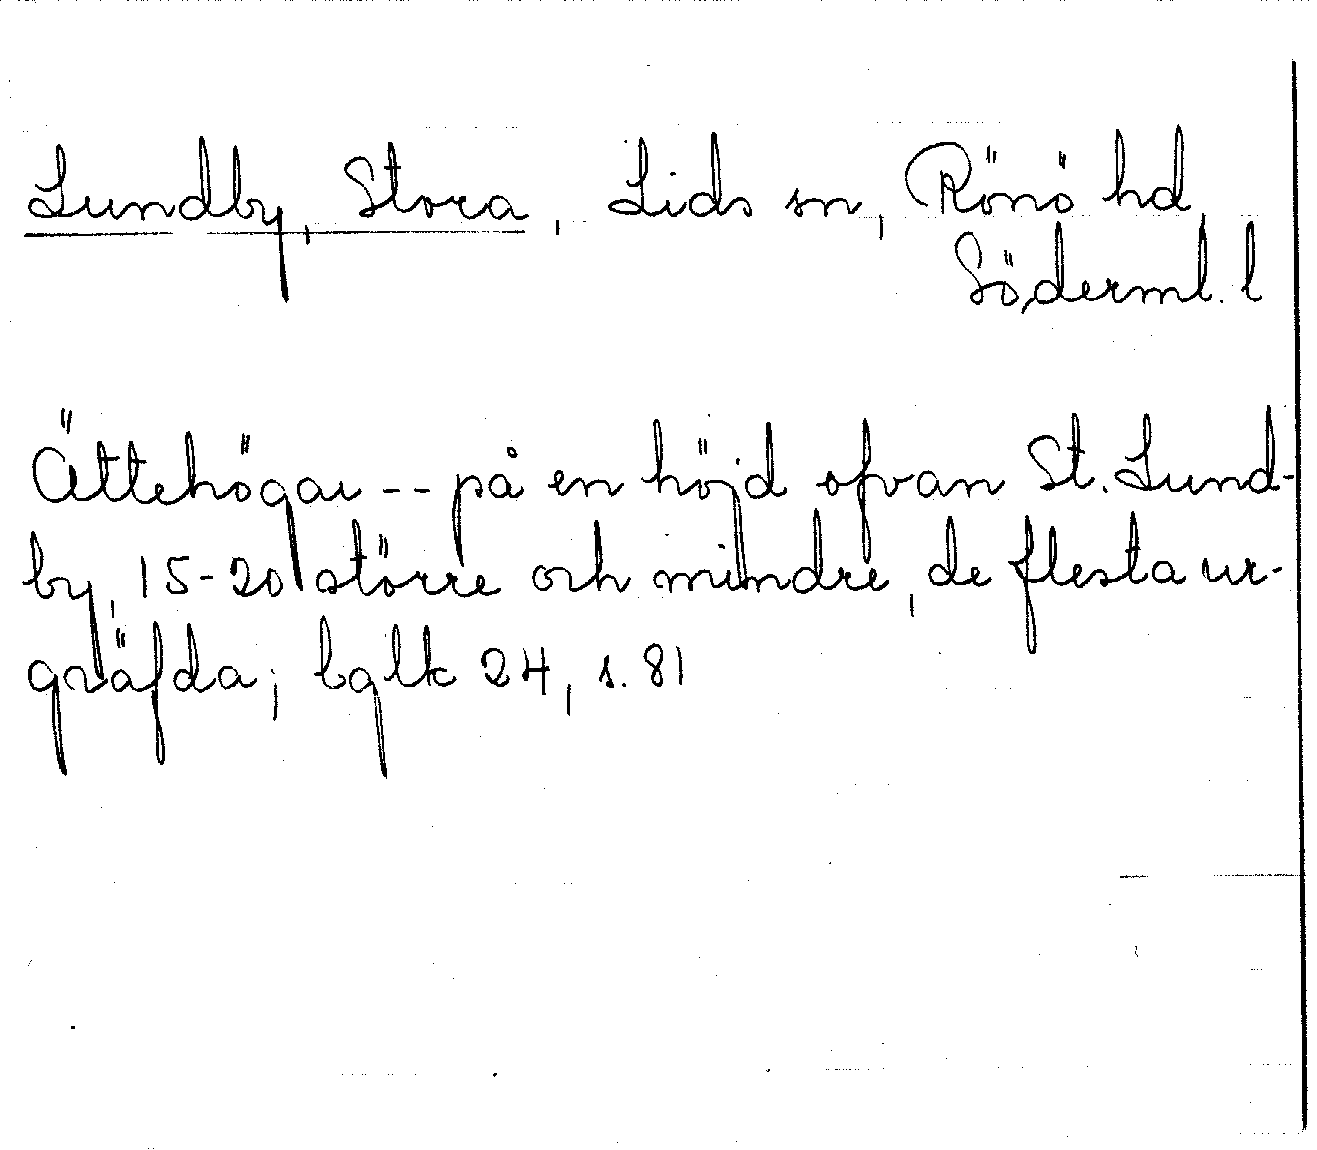 Lundby, Stora, Lids sn, Rönö hd,
Söderml. l
Ättehögar -- på en höjd ofvan St. Lund-
by, 15-20 större och mindre, de flesta ur-
gräfda; bglk 24, s. 81